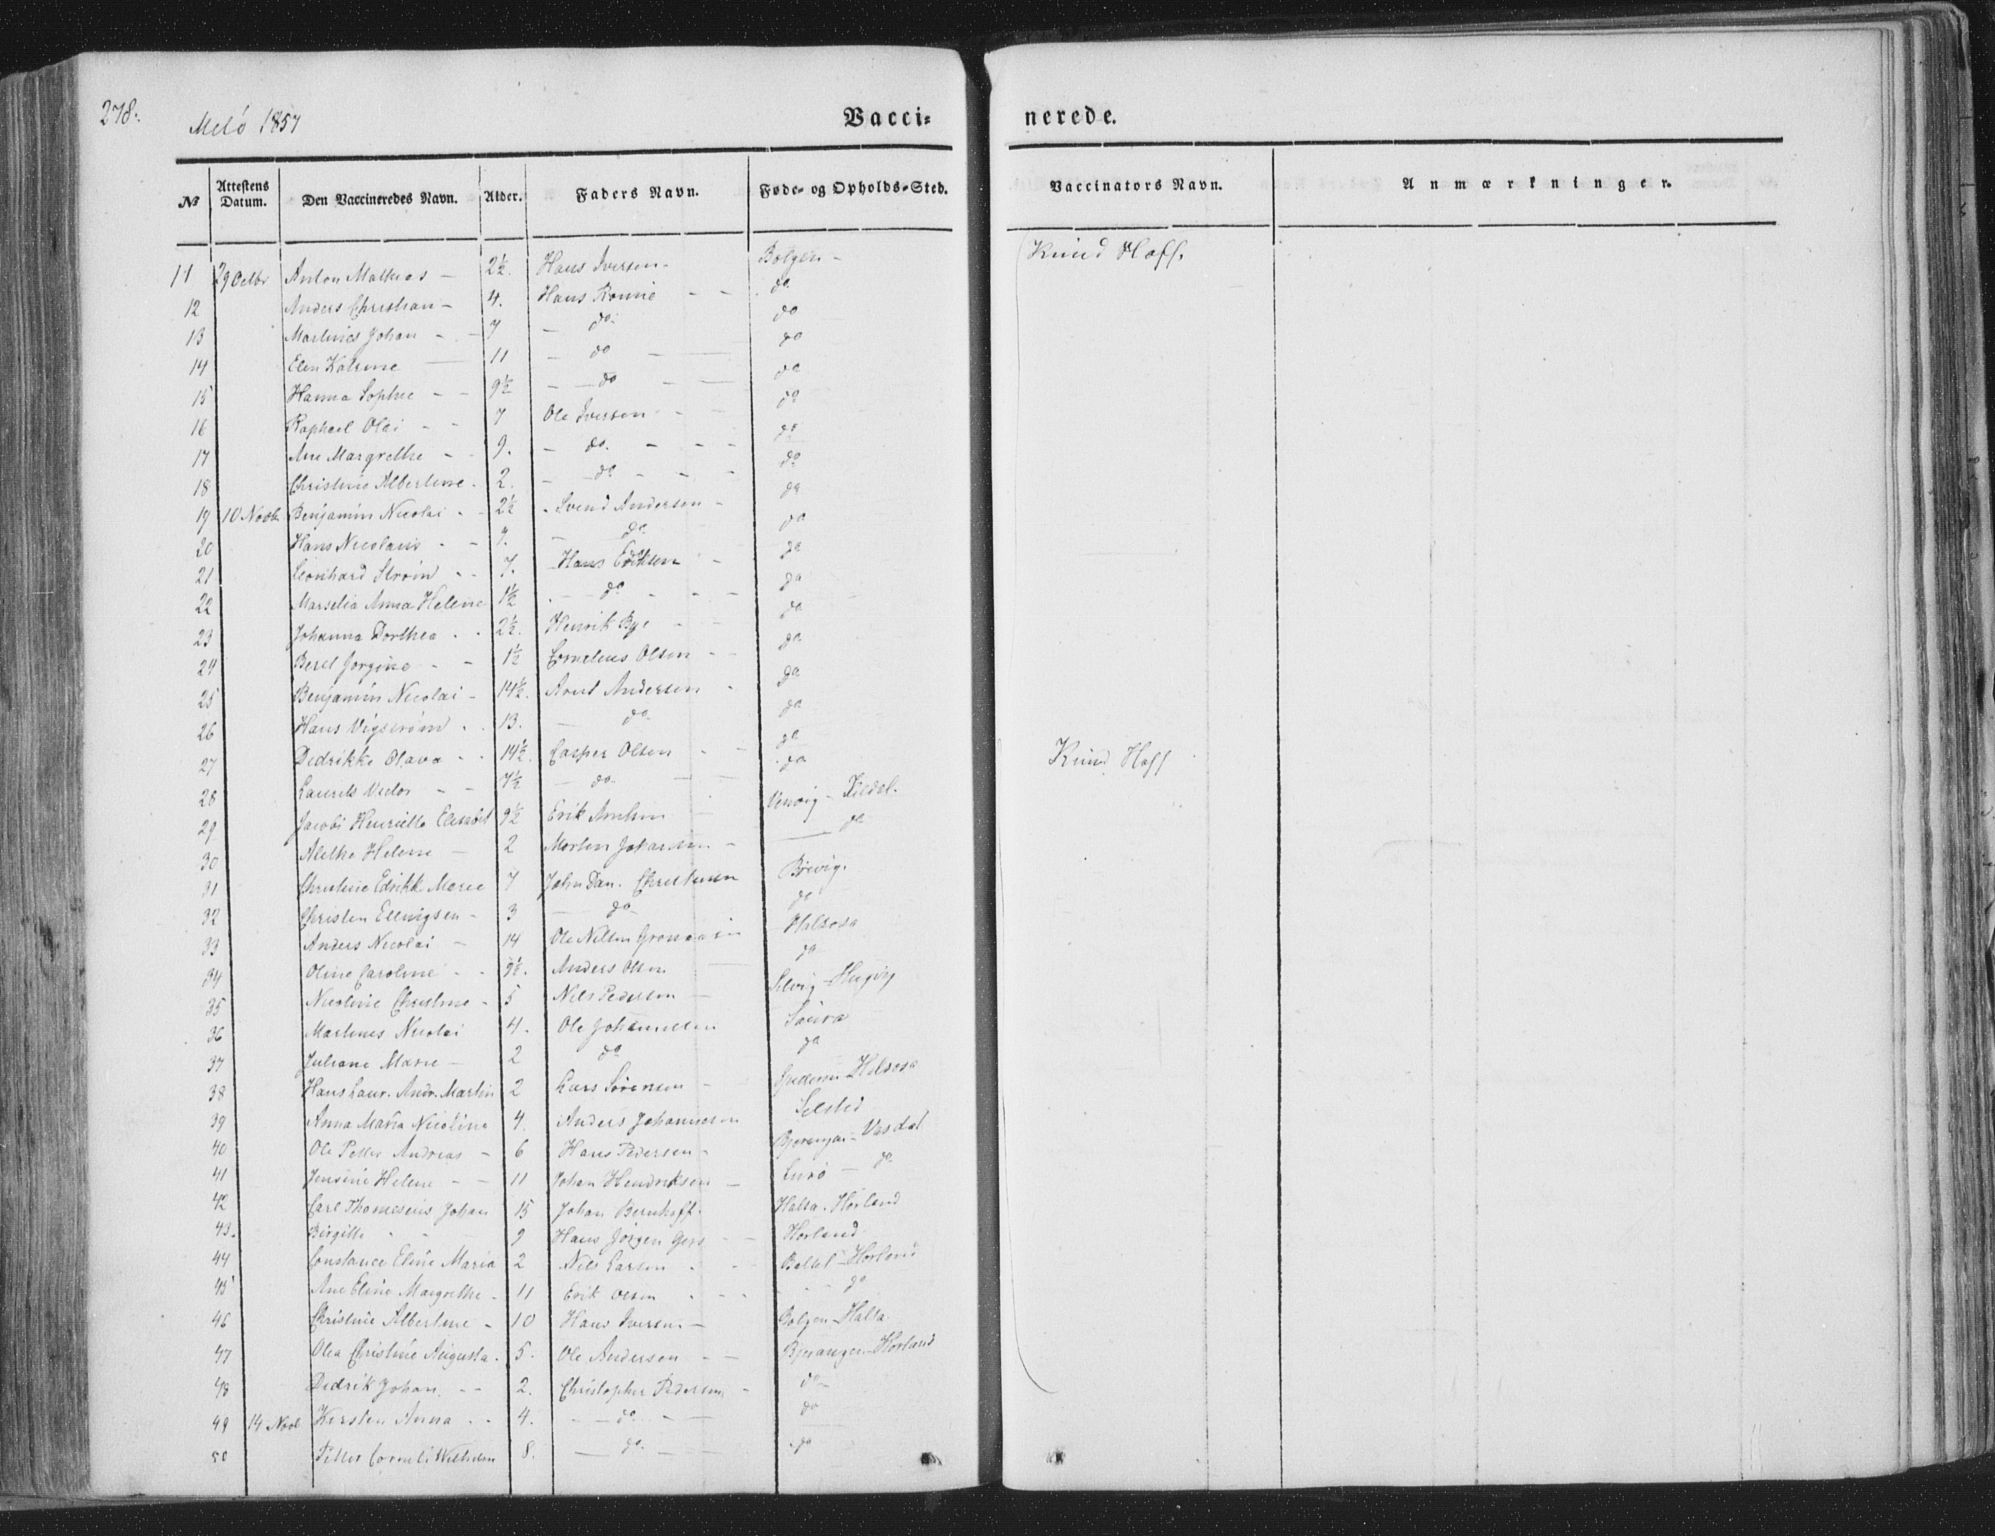 278.
Melö 1857
Vacci- nerede.
№ Attestens Datum. Den Vaccineredes Navn. Alder. Faders Navn. Føde- og Opholds-Sted. Vaccinators Navn. Anmærkninger.
11 29 Octbr Anton Mathias - 2½. Hans Iversen - Bolgen - Knud Hoff.
12 Anders Christian - 4. Hans Ronnie - - do
13 Martines Johan - - 7 - do. do
14 Elen Katrine 11 - do - do
15 Hanna Sophie - - 9½ - - do - - do
16 Raphael Olai - - 7 Ole Iversen - - do
17 Ane Margrethe - - 9. - do. - - - do
18 Christine Albertine - 2. - do - - - do
19 10 Novbr Benjamin Nicolai - - 2½ - Svend Andersen - do
20 Hans Nicolaus - - 9. - do do
21 Leonhard Strøm - - 7. Hans Eriksen - do
22 Marselia Anna Helene 1½ - do - - - do
23 Johanna Dorthea - - 2½. Henrik Bye - - do
24 Beret Jorgine - - 1½ Cornelius Olsen - - do
25 Benjamin Nicolai - 14½. Arnt Andersen - do
26 Hans - 13. - do. do
27 Dedrikke Olava - - 14½. Casper Olsen - - do Knud Hoff
28 Laurits Victor - - 7½ - do. - - do
29 Jacobi Henriette 9½ Erik - Kildal.
30 Alethe Helene - 2 Morten - do
31 Christine Edrikk. Marie 7 John Dan. Christensen
32 Christen Ellevigsen - 3 - do - do
33 Anders Nicolai - 14 Ole Nilsen Halsosa
34 Oline Caroline - - Anders Olsen do
35 Nicoline Christine - 5 Nils Pedersen - Selvig -
36 Martines Nicolai 4. Ole Johannesen Saura
37 Juliane Marie - 2 do do
38 Hans Laur. Andr. Martin 2 Lars Sørensen - Halsosa
39 Anna Maria Nicoline 4. Anders Johannesen Selsted
40 Ole Petter Andreas - 6 Hans Pedersen - Bjerangen - Vasdal
41 Jensine Helene - - 11 Johan Hendriksen - Lurö - do
42 Carl Thomesius Johan 15 Johan Bernhoff. Halsa. Horland
43. Birgitte - - 9 Hans Jörgen - - Horland
44 Constance Eline Maria 2 Nils Larsen - - - Horland
45 Ane Eline Margrethe - 11 Erik Olsen - - - - do
46 Christine Albertine - 10 Hans Iversen - Bolgen - Halsa
47 Olea Christine Augusta. 5. Ole Andersen - - Bjerangen - Horland
48 Dedrik Johan - - 2. Christopher Pedersen - do -
49 14 Novb Kirsten Anna - - 4. - - do - - do
50 Petter Corneli Wilhelm 8. - do - - do